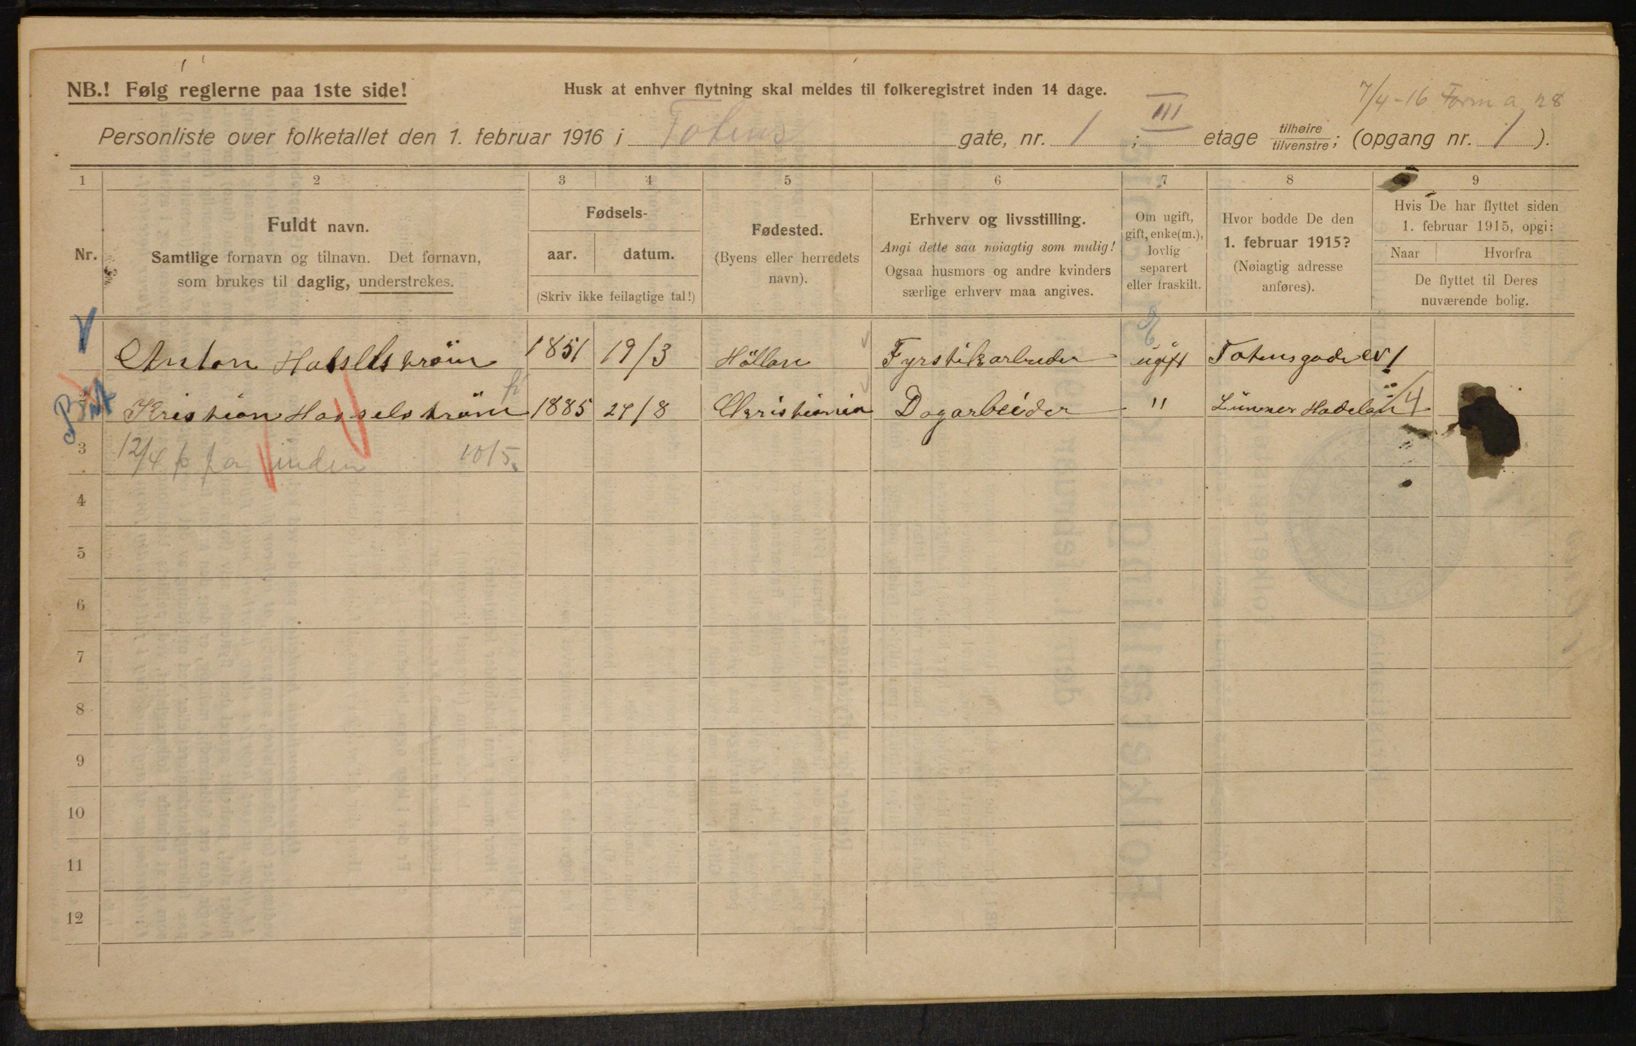 NB.! Følg reglerne paa 1ste side!
Husk at enhver flytning skal meldes til folkeregistret inden 14 dage.
7/4-16 Form a 28
Personliste over folketallet den 1. februar 1916 i Totens gate, nr. 1 ; III etage tilhøire tilvenstre; (opgang nr. 1).
1 2 3 4 5 6 7 8 9
Nr.
Fuldt navn.
Samtlige fornavn og tilnavn. Det fornavn,
som brukes til daglig, understrekes.
Fødsels-
aar. datum.
(Skriv ikke feilagtige tal!)
Fødested.
(Byens eller herredets
navn).
Erhverv og livsstilling.
Angi dette saa nøiagtig som mulig!
Ogsaa husmors og andre kvinders
særlige erhverv maa angives.
Om ugift,
gift, enke(m.),
lovlig
separert
eller fraskilt.
Hvor bodde De den
1. februar 1915?
(Nøiagtig adresse
anføres).
Hvis De har flyttet siden
1. februar 1915, opgi:
Naar Hvorfra
De flyttet til Deres
nuværende bolig.
Anton Hasselstrøm 1851 19/3 Höllan Fyrstikarbeider ugift Totensgade No 1
Kristian Hasselström 1885 27/8 Christiania Dagarbeider " Lunner Hadeland
3 12/4 inden 10/5.
4
5
6
7
8
9
10
11
12